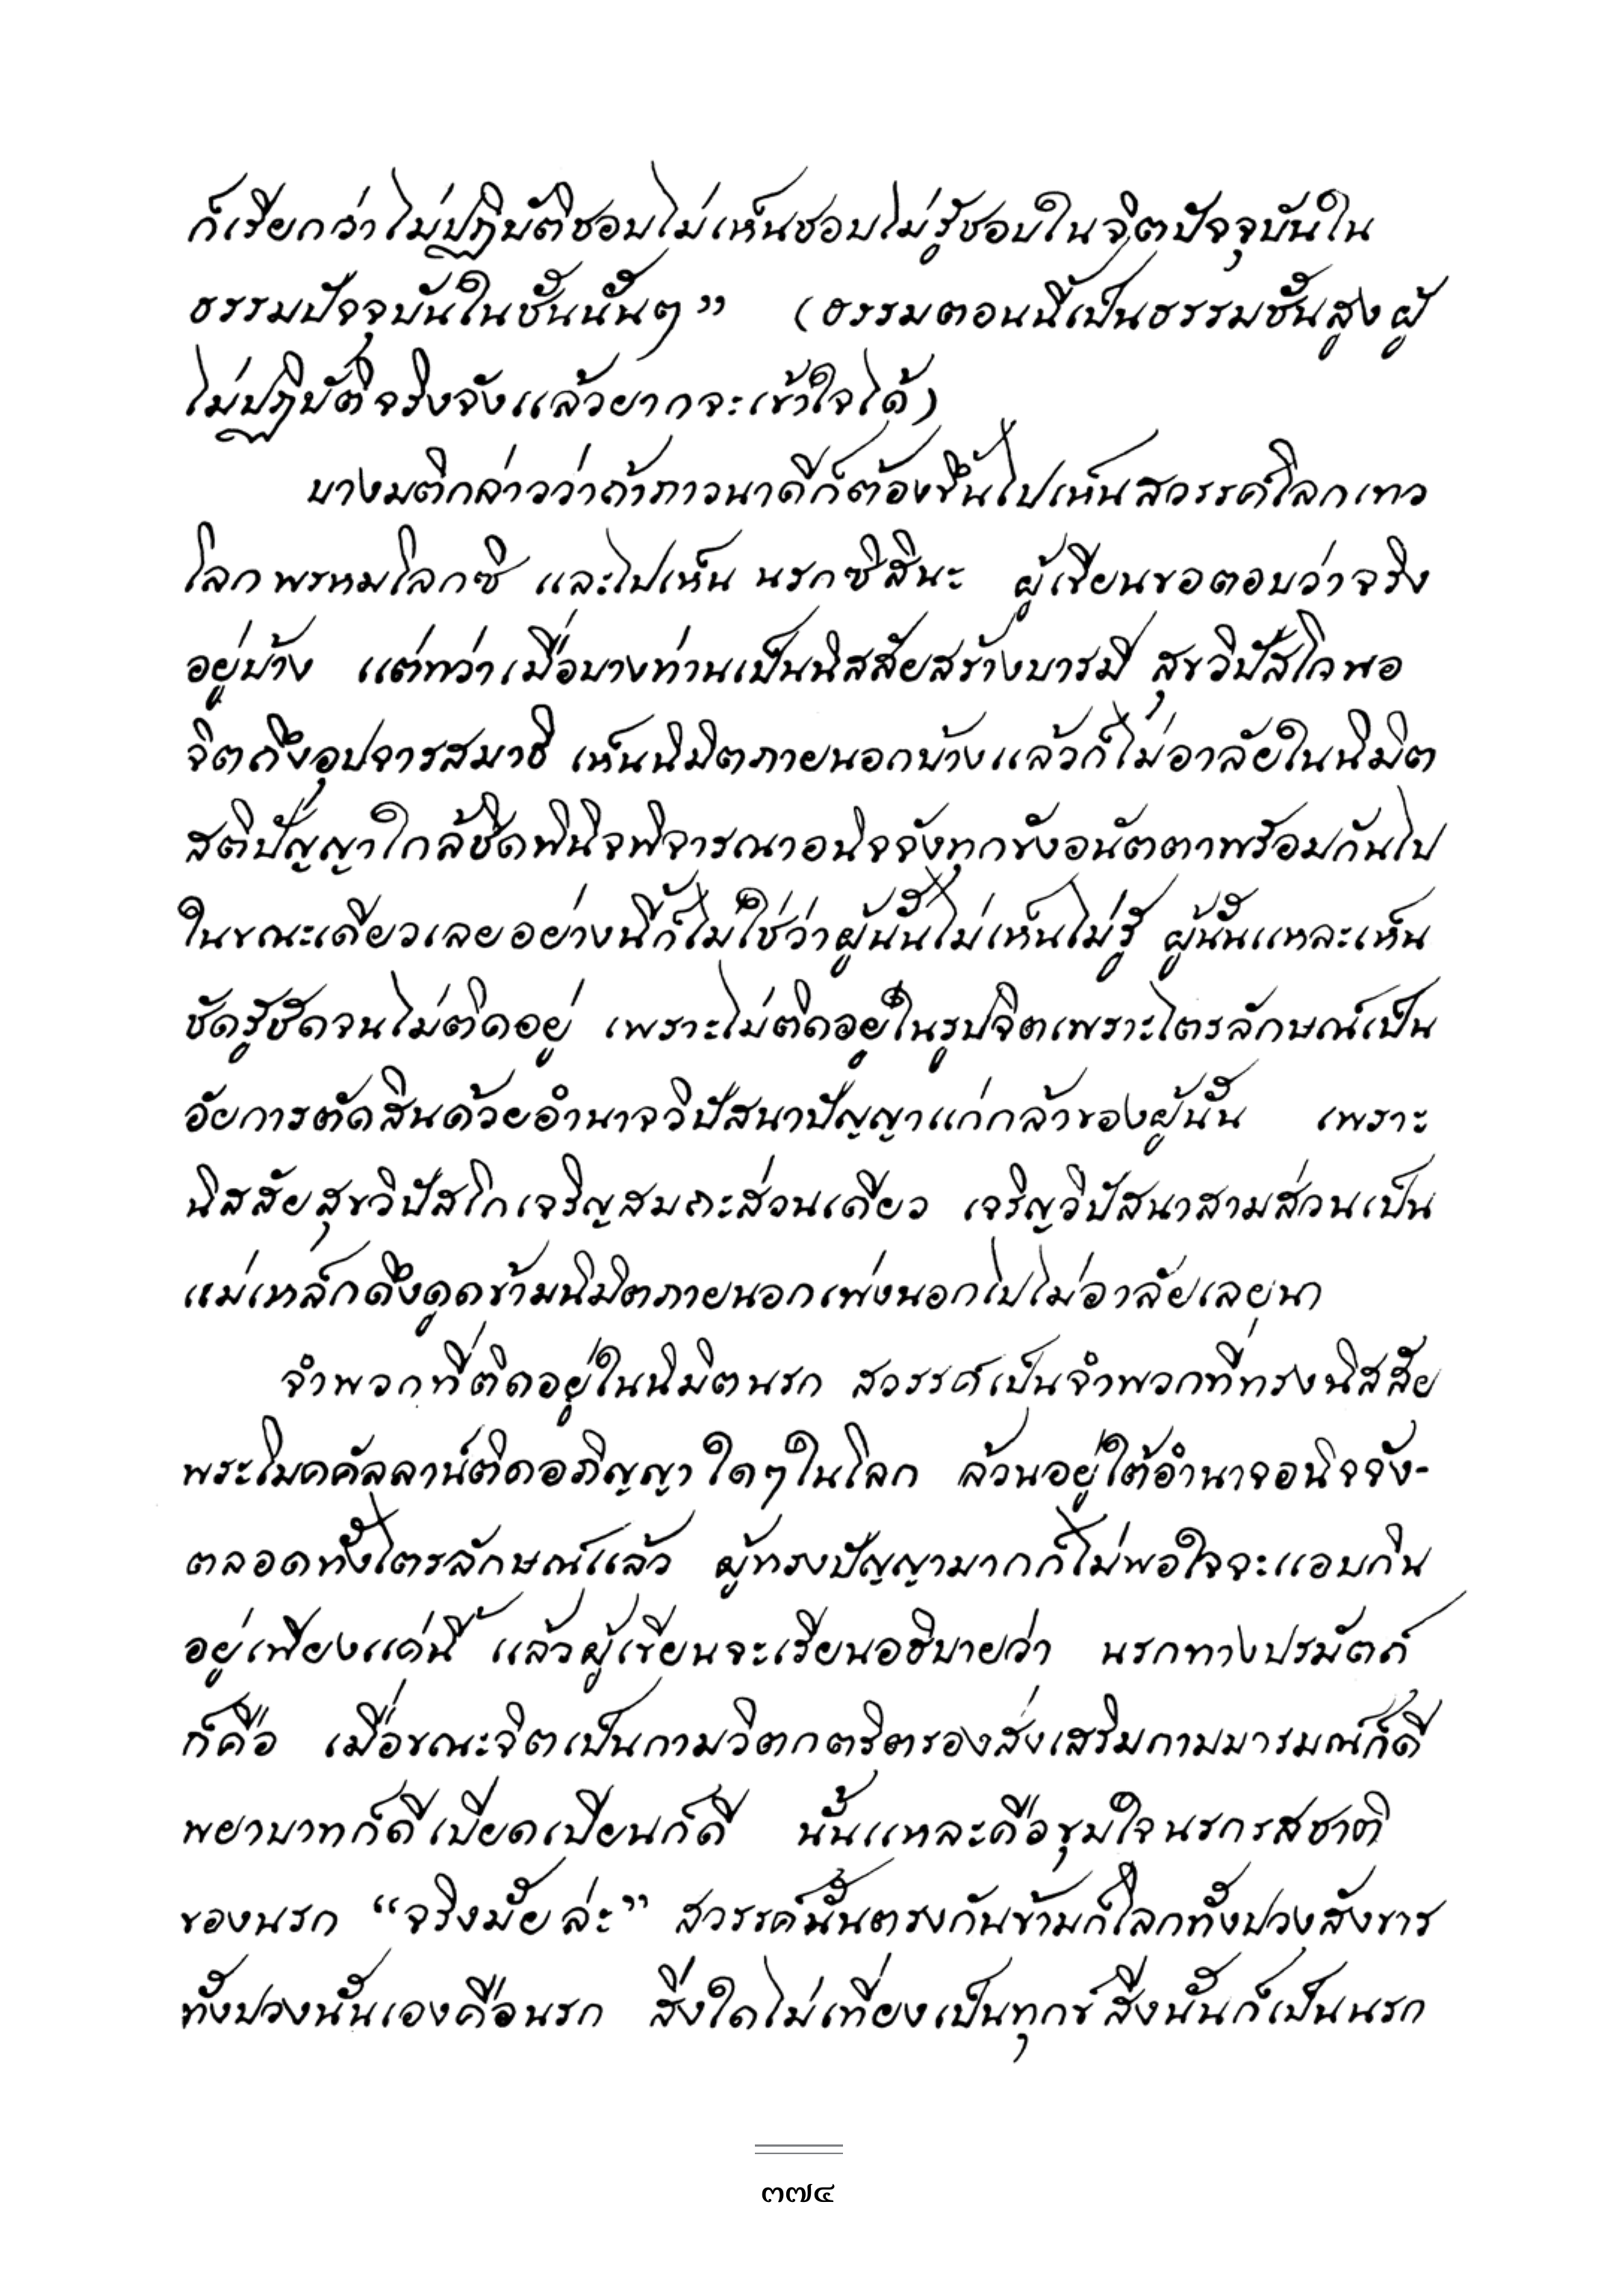 ก็เรียกว่าไม่ปฏิบัติชอบไม่เห็นชอบไม่รู้ชอบในจิตปัจจุบันใน
ธรรมปัจจุบันในชั้นนั้นๆ” (ธรรมตอนนี้เป็นธรรมชั้นสูงผู้
ไม่ปฏิบัติจริงจังแล้วยากจะเข้าใจได้)
บางมติกล่าวว่าถ้าภาวนาดีก็ต้องขึ้นไปเห็นสวรรค์โลกเทว
โลกพรหมโลกซิ และไปเห็น นรกซิสินะ ผู้เขียนขอตอบว่าจริง
อยู่บ้าง แต่ทว่าเมื่อบางท่านเป็นนิสสัยสร้างบารมี สุขวิปัสโกพอ
จิตถึงอุปจารสมาธิ เห็นนิมิตภายนอกบ้างแล้วก็ไม่อาลัยในนิมิต
สติปัญญาใกล้ชิดพินิจพิจารณาอนิจจังทุกขังอนัตตาพร้อมกันไป
ในขณะเดียวเลยอย่างนี้ก็ไม่ใช่ว่าผู้นั้นไม่เห็นไม่รู้ ผู้นั้นแหละเห็น
ชัดรู้ชัดจนไม่ติดอยู่ เพราะไม่ติดอยู่ในรูปจิตเพราะไตรลักษณ์เป็น
อัยการตัดสินด้วยอำนาจวิปัสนาปัญญาแก่กล้าของผู้นั้น เพราะ
นิสสัยสุขวิปัสโกเจริญสมถะส่วนเดียว เจริญวิปัสนาสามส่วนเป็น
แม่เหล็กดึงดูดข้ามนิมิตภายนอกเพ่งนอกไปไม่อาลัยเลยนา
จำพวกที่ติดอยู่ในนิมิตนรก สวรรค์เป็นจำพวกที่ทรงนิสสัย
พระโมคคัลลาน์ติดอภิญญา ใดๆในโลก ล้วนอยู่ใต้อำนาจอนิจจัง-
ตลอดทั้งไตรลักษณ์แล้ว ผู้ทรงปัญญามากก็ไม่พอใจจะแอบกิน
อยู่เพียงแค่นี้ แล้วผู้เขียนจะเรียนอธิบายว่า นรกทางปรมัตถ์
ก็คือ เมื่อขณะจิตเป็นกามวิตกตริตรองส่งเสริมกามมารมณ์ก็ดี
พยาบาทก็ดีเบียดเบียนก็ดี นั้นแหละคือขุมใจนรกรสชาติ
ของนรก “จริงมั้ยล่ะ” สวรรค์นั้นตรงกันข้ามก็โลกทั้งปวงสังขาร
ทั้งปวงนั้นเองคือนรก สิ่งใดไม่เที่ยงเป็นทุกข์สิ่งนั้นก็เป็นนรก
๓๗๔